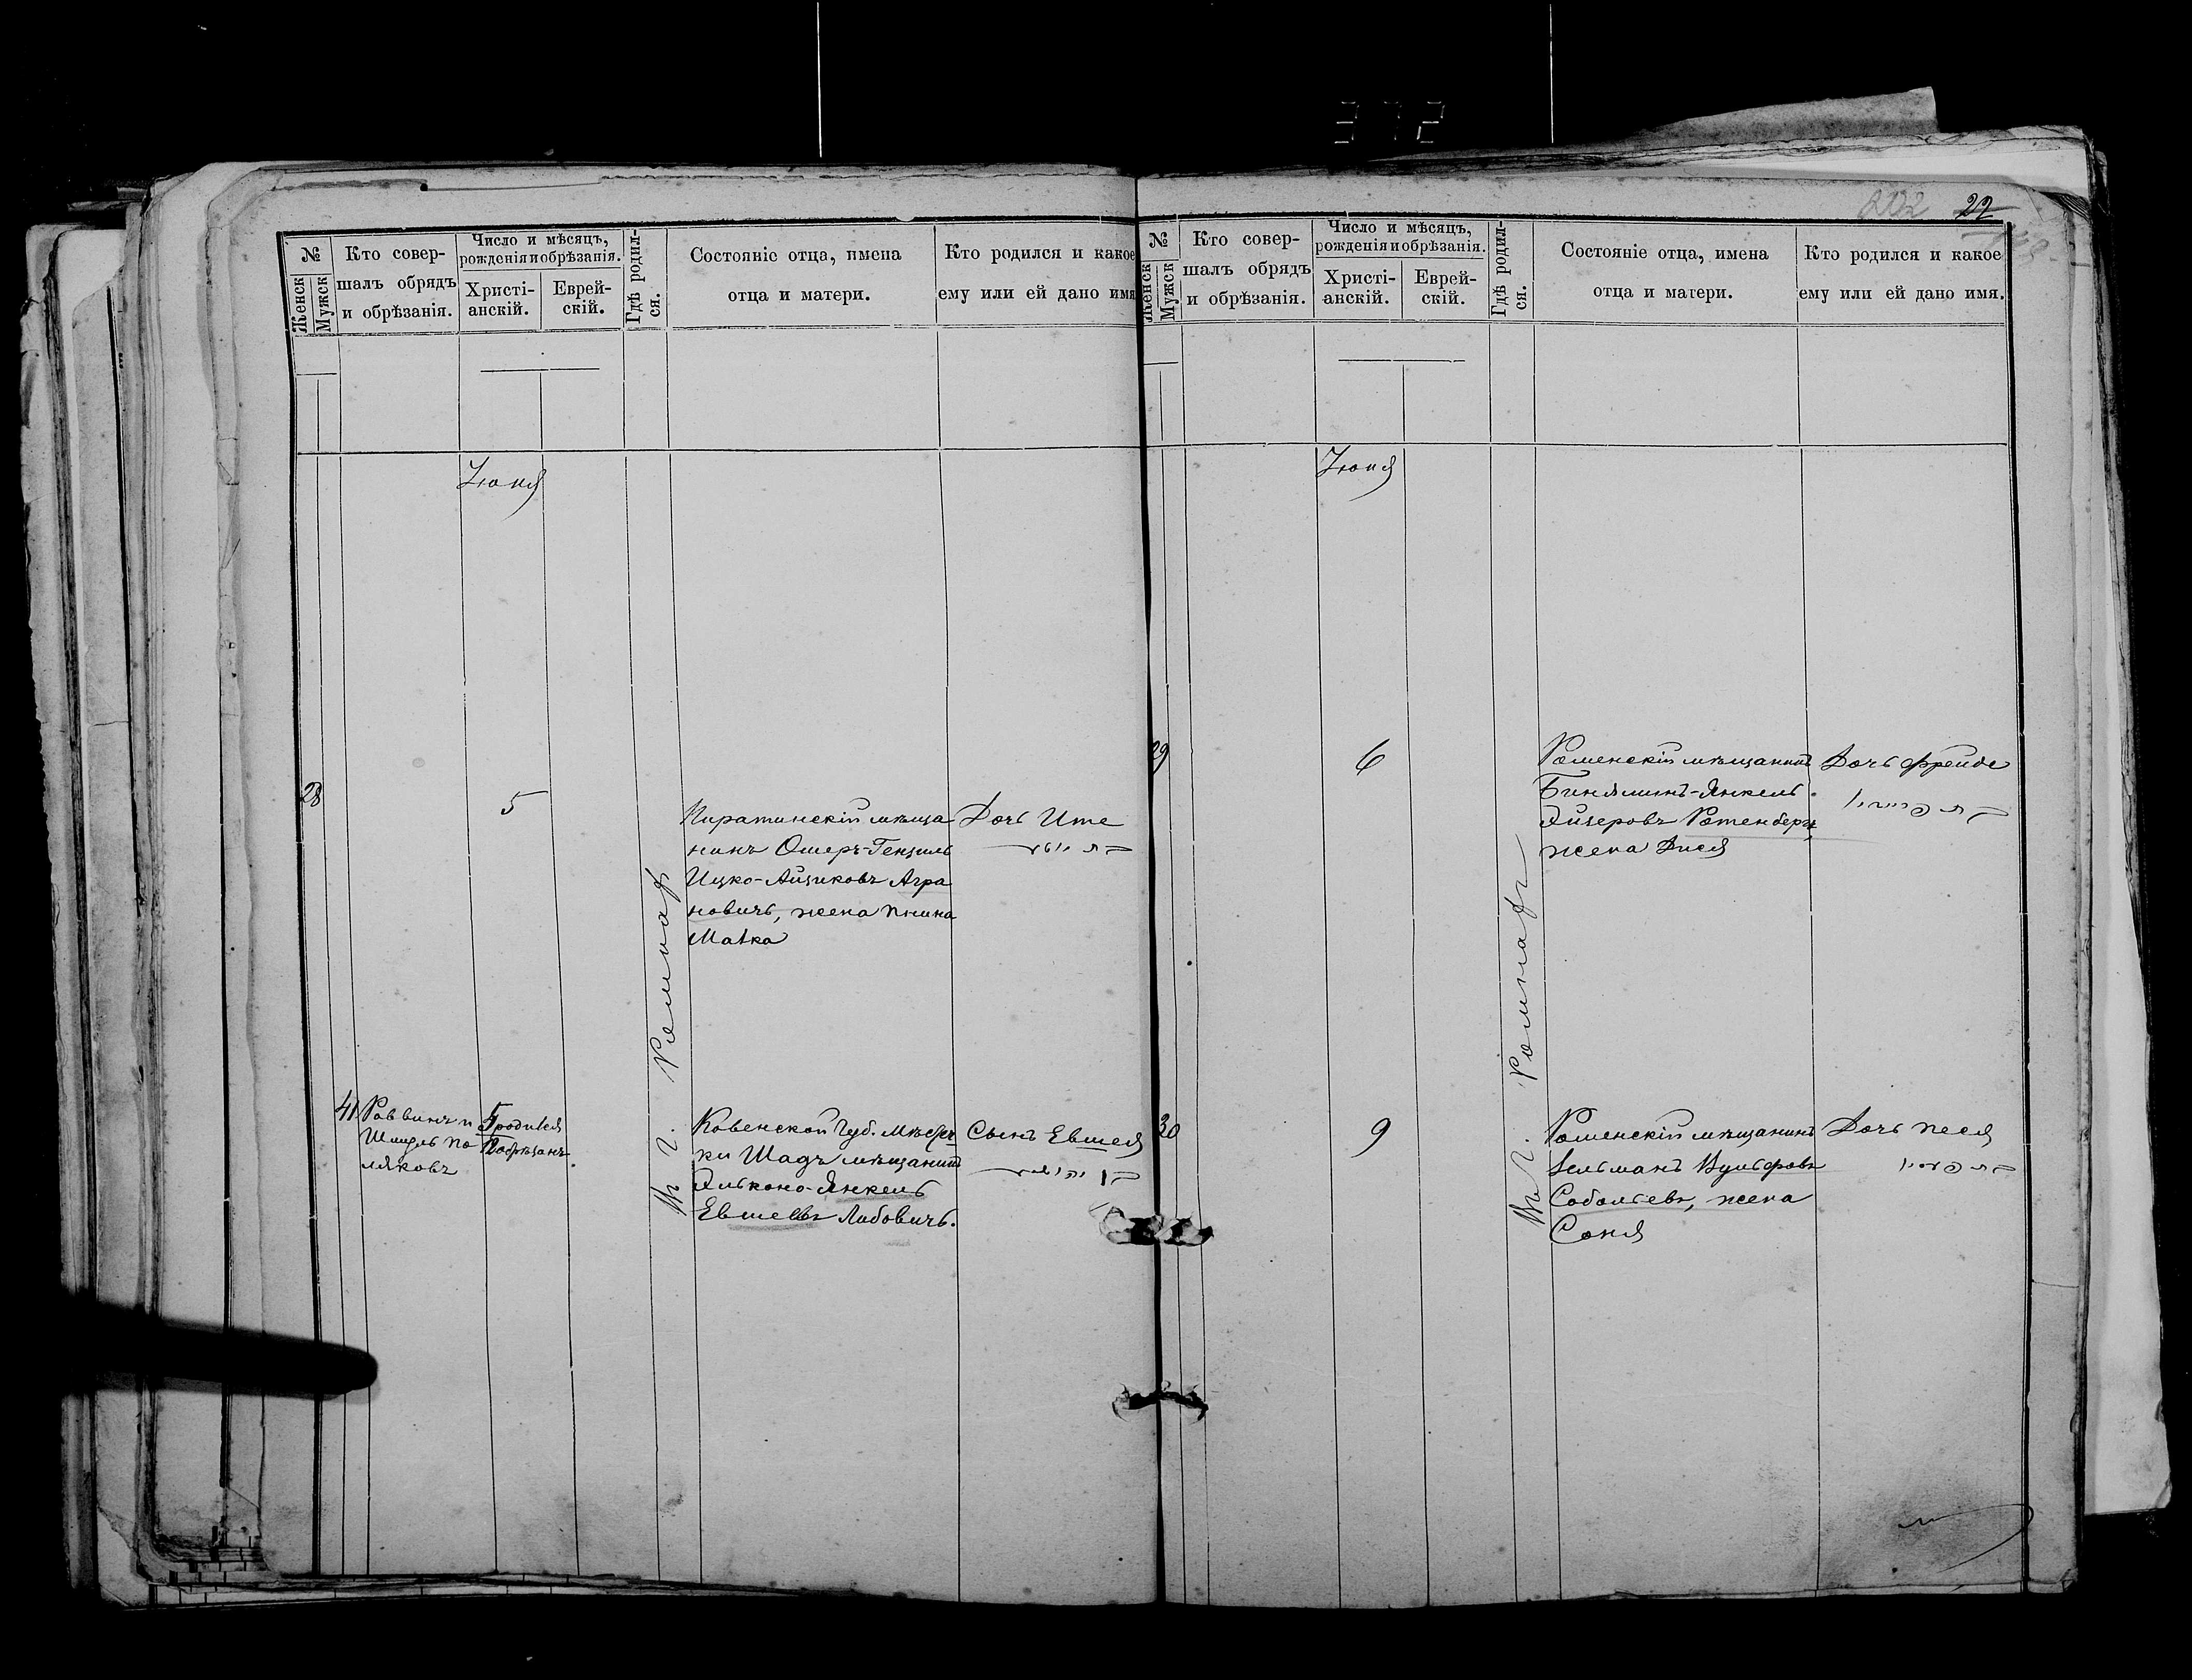 372
№
Женск
Мужск
Кто совер-
шалъ обрядъ
и обрѣзанія.
Число и мѣсяцъ,
рожденія и обрѣзанія.
Христі-
анскій.
Еврей-
скій.
Гдѣ родил-
ся.
Состояніе отца, имена
отца и матери.
Кто родился и какое
ему или ей дано имя
Іюня
28
5
Въ г. Ромнахъ
Пиратинскій мѣща
нинъ Ошеръ-Гензиль
Ицко-Айзиковъ Агра
новичъ, жена
Дочь Ите
41
Раввинъ и
Шмуль По
ляковъ
5 родился
12 обрѣзанъ
Ковенской Губ. Мѣстеч
ки Шадъ мѣщанинъ
Эльконо-Янкель
Евшевъ Либовичъ.
Сынъ Евшея
202 22
№
Женск
Мужск
Кто совер-
шалъ обрядъ
и обрѣзанія.
Число и мѣсяцъ,
рожденія и обрѣзанія.
Христі-
анскій.
Еврей-
скій.
Гдѣ родил-
ся.
Состояніе отца, имена
отца и матери.
Кто родился и какое
ему или ей дано имя.
Іюня
29
6
Въ г. Ромнахъ
Роменскій мѣщанинъ
Биняминъ-Янкель
Лйзеровъ Ротенбергъ
жена
Дочь Фрейде
30
9
Роменскій мѣщанинъ
Зельманъ Вульфовъ
Собольевъ, жена
Соня
Дочь Песя